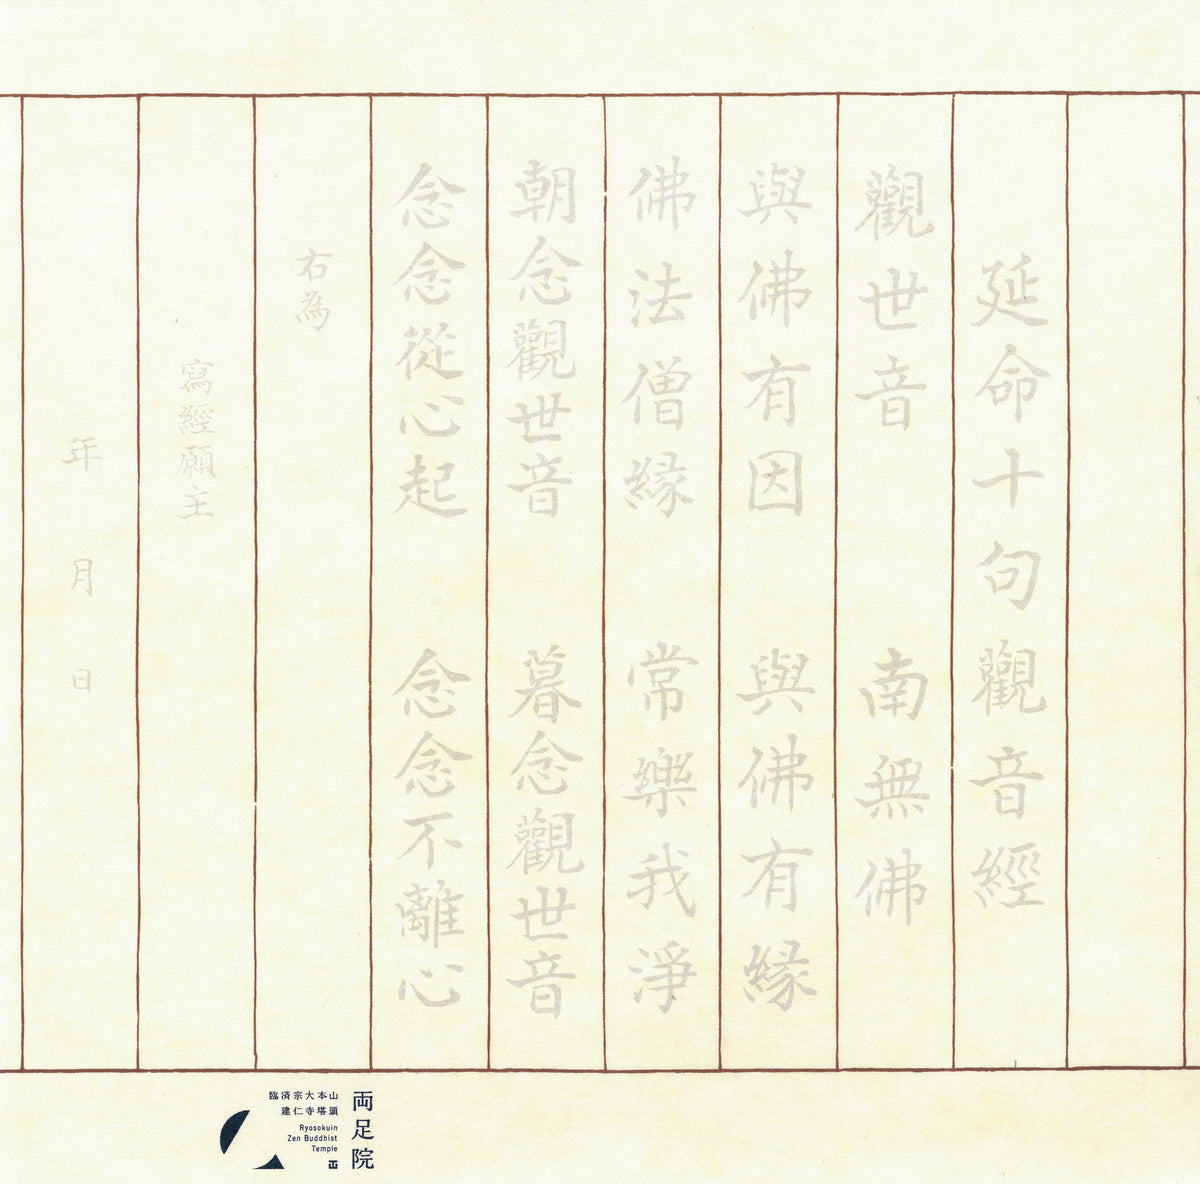 延命十句觀音經
觀世音 南無佛
與佛有因 與佛有縁
佛法僧縁 常樂我淨
朝念觀世音 暮念觀世音
念念從心起 念念不離心
右為
寫經願主
年 月 日
両足院
臨済宗大本山
建仁寺塔頭
Ryosokuin
Zen Buddhist
Temple